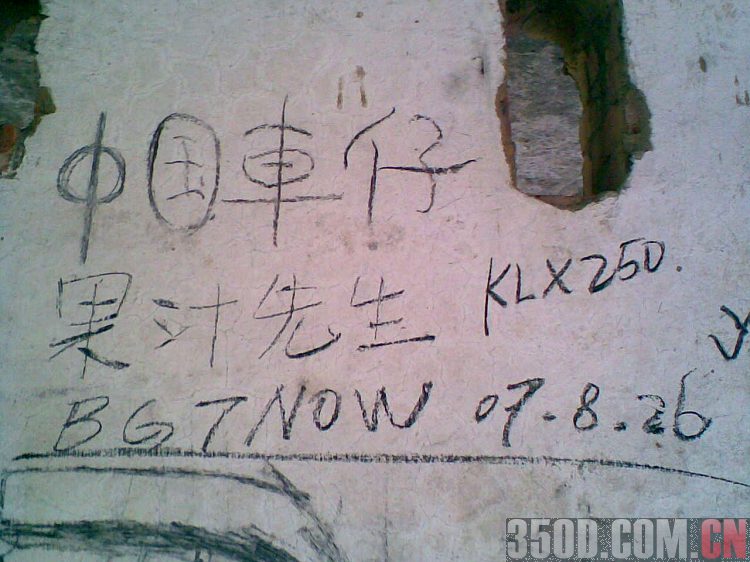 中国車仔
果汁先生 KLX250.
BG7NOW 07.8.26
350D.COM.CN